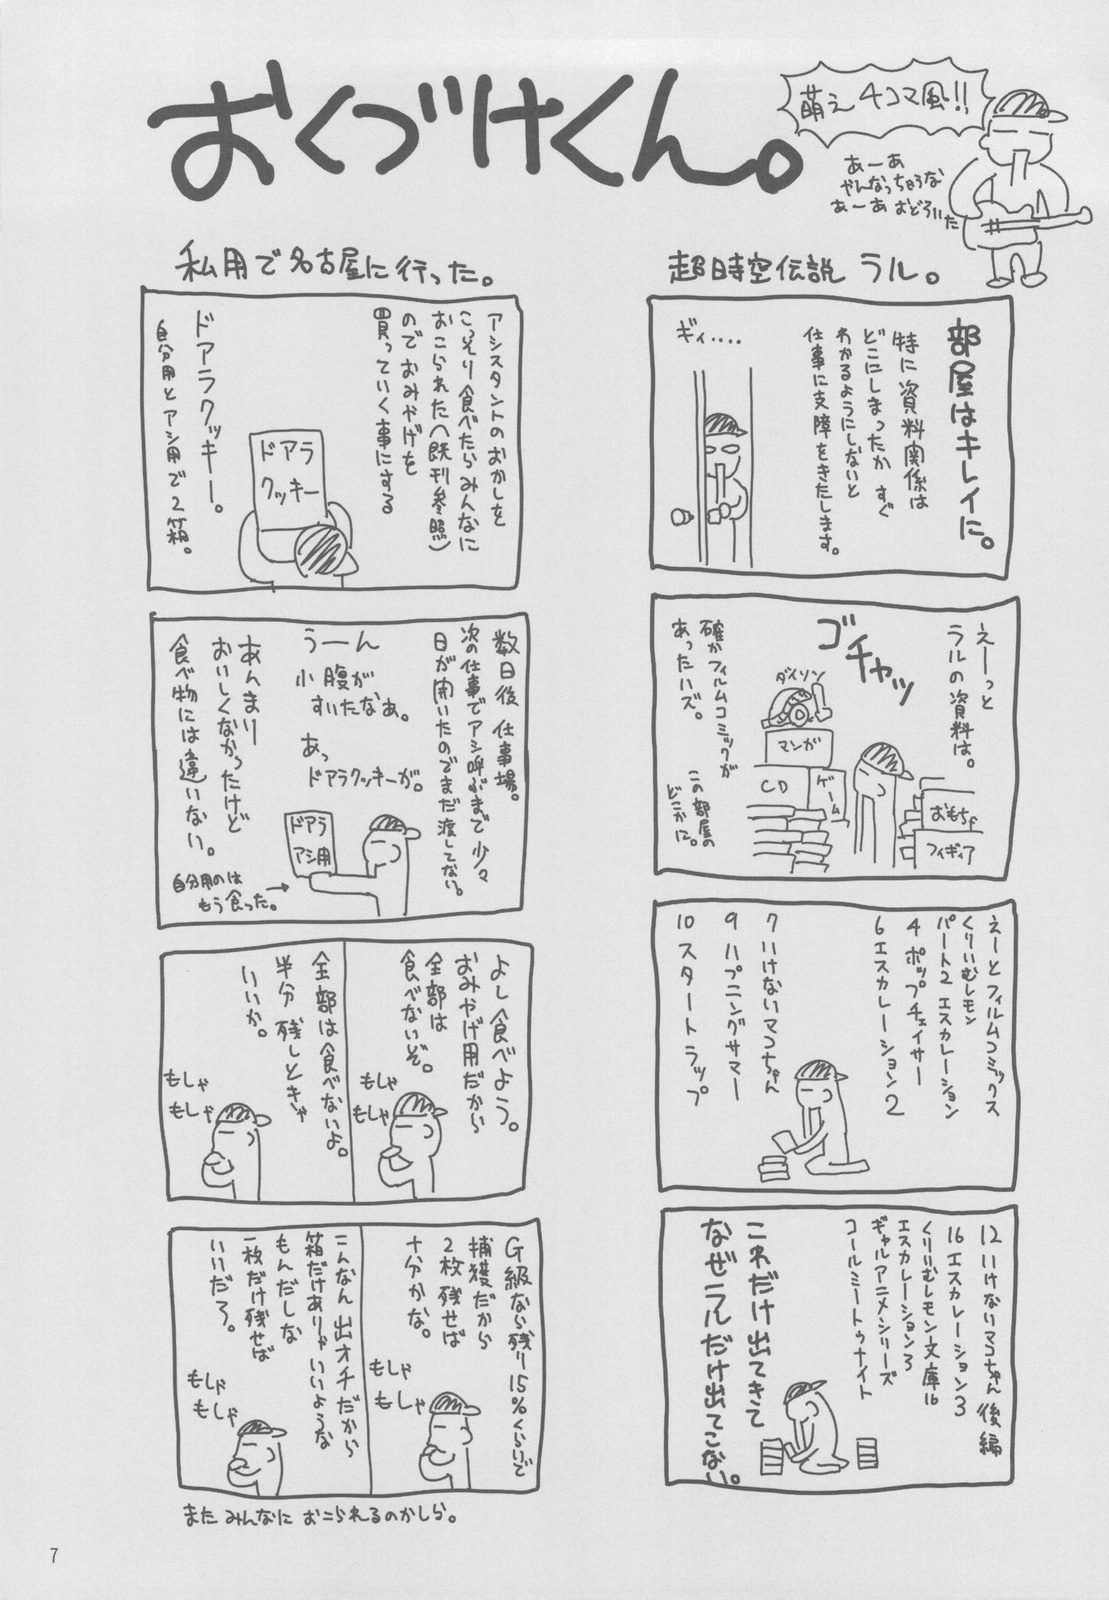 おくづけくん。
萌え4コマ風!!
あーあ
やんなっちゃうな
あーあ おどろいた
超時空伝説 ラル。
部屋はキレイに。
特に資料関係は
どこにしまったか すぐ
わかるようにしないと
仕事に支障をきたします。
ギィ‥‥
えーっと
ラルの資料は。
ゴチャッ
ダイソン
マンガ
CD
ゲーム
おもちゃ
フィギィア
確かフィルムコミックが
あったハズ。
この部屋の
どこかに。
えーとフィルムコミックス
くりいむレモン
パート2 エスカレーション
4 ポップチェイサー
6 エスカレーション2
7 いけないマコちゃん
9 ハプニングサマー
10 スタートラップ
12 いけないマコちゃん 後編
16 エスカレーション3
くりいむレモン文庫16
エスカレーション3
ギャルアニメシリーズ
コールミートゥナイト
これだけ出てきて
なぜラルだけ出てこない。
私用で名古屋に行った。
アシスタントのおかしを
こっそり食べたらみんなに
おこられた(既刊参照)
のでおみやげを
買っていく事にする
ドアラ
クッキー
ドアラクッキー。
自分用とアシ用で2箱。
数日後 仕事場。
次の仕事でアシ呼ぶまで少々
日が開いたのでまだ渡してない。
うーん
小腹が
すいたなあ。
あっ
ドアラクッキーが。
ドアラ
アシ用
あんまり
おいしくなかったけど
食べ物には違いない。
自分用のは
もう食った。
よし食べよう。
おみやげ用だから
全部は
食べないぞ。
もしゃ
もしゃ
全部は食べないよ。
半分 残しときゃ
いいか。
もしゃ
もしゃ
G級なら残り15%くらいで
捕獲だから
2枚残せば
十分かな。
もしゃ
もしゃ
こんなん 出オチだから
箱だけありゃいいような
もんだしな
一枚だけ残せば
いいだろ。
もしゃ
もしゃ
また みんなに おこられるのかしら。
7